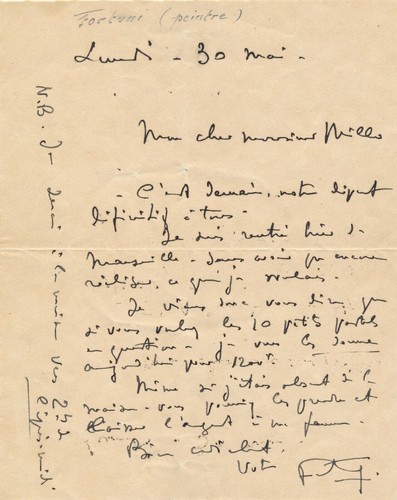 Fortuni (peintre)
Lundi - 30 mai -
Mon cher monsieur Millo
- C'est demain, notre départ
définitif à tous -
Je suis rentré hier de
Marseille - sans avoir pu encore
réaliser, ce que je voulais.
Je viens donc vous dire que
si vous voulez les 10 petits pastels
en question - je vous les donne
aujourd'hui pour
Même si j'étais absent de la
maison - vous pouvez les prendre et
laisser l'argent à ma femme.
Bien cordialement.
Votre
N.B. Je serai à la maison vers 2h de
l'après-midi